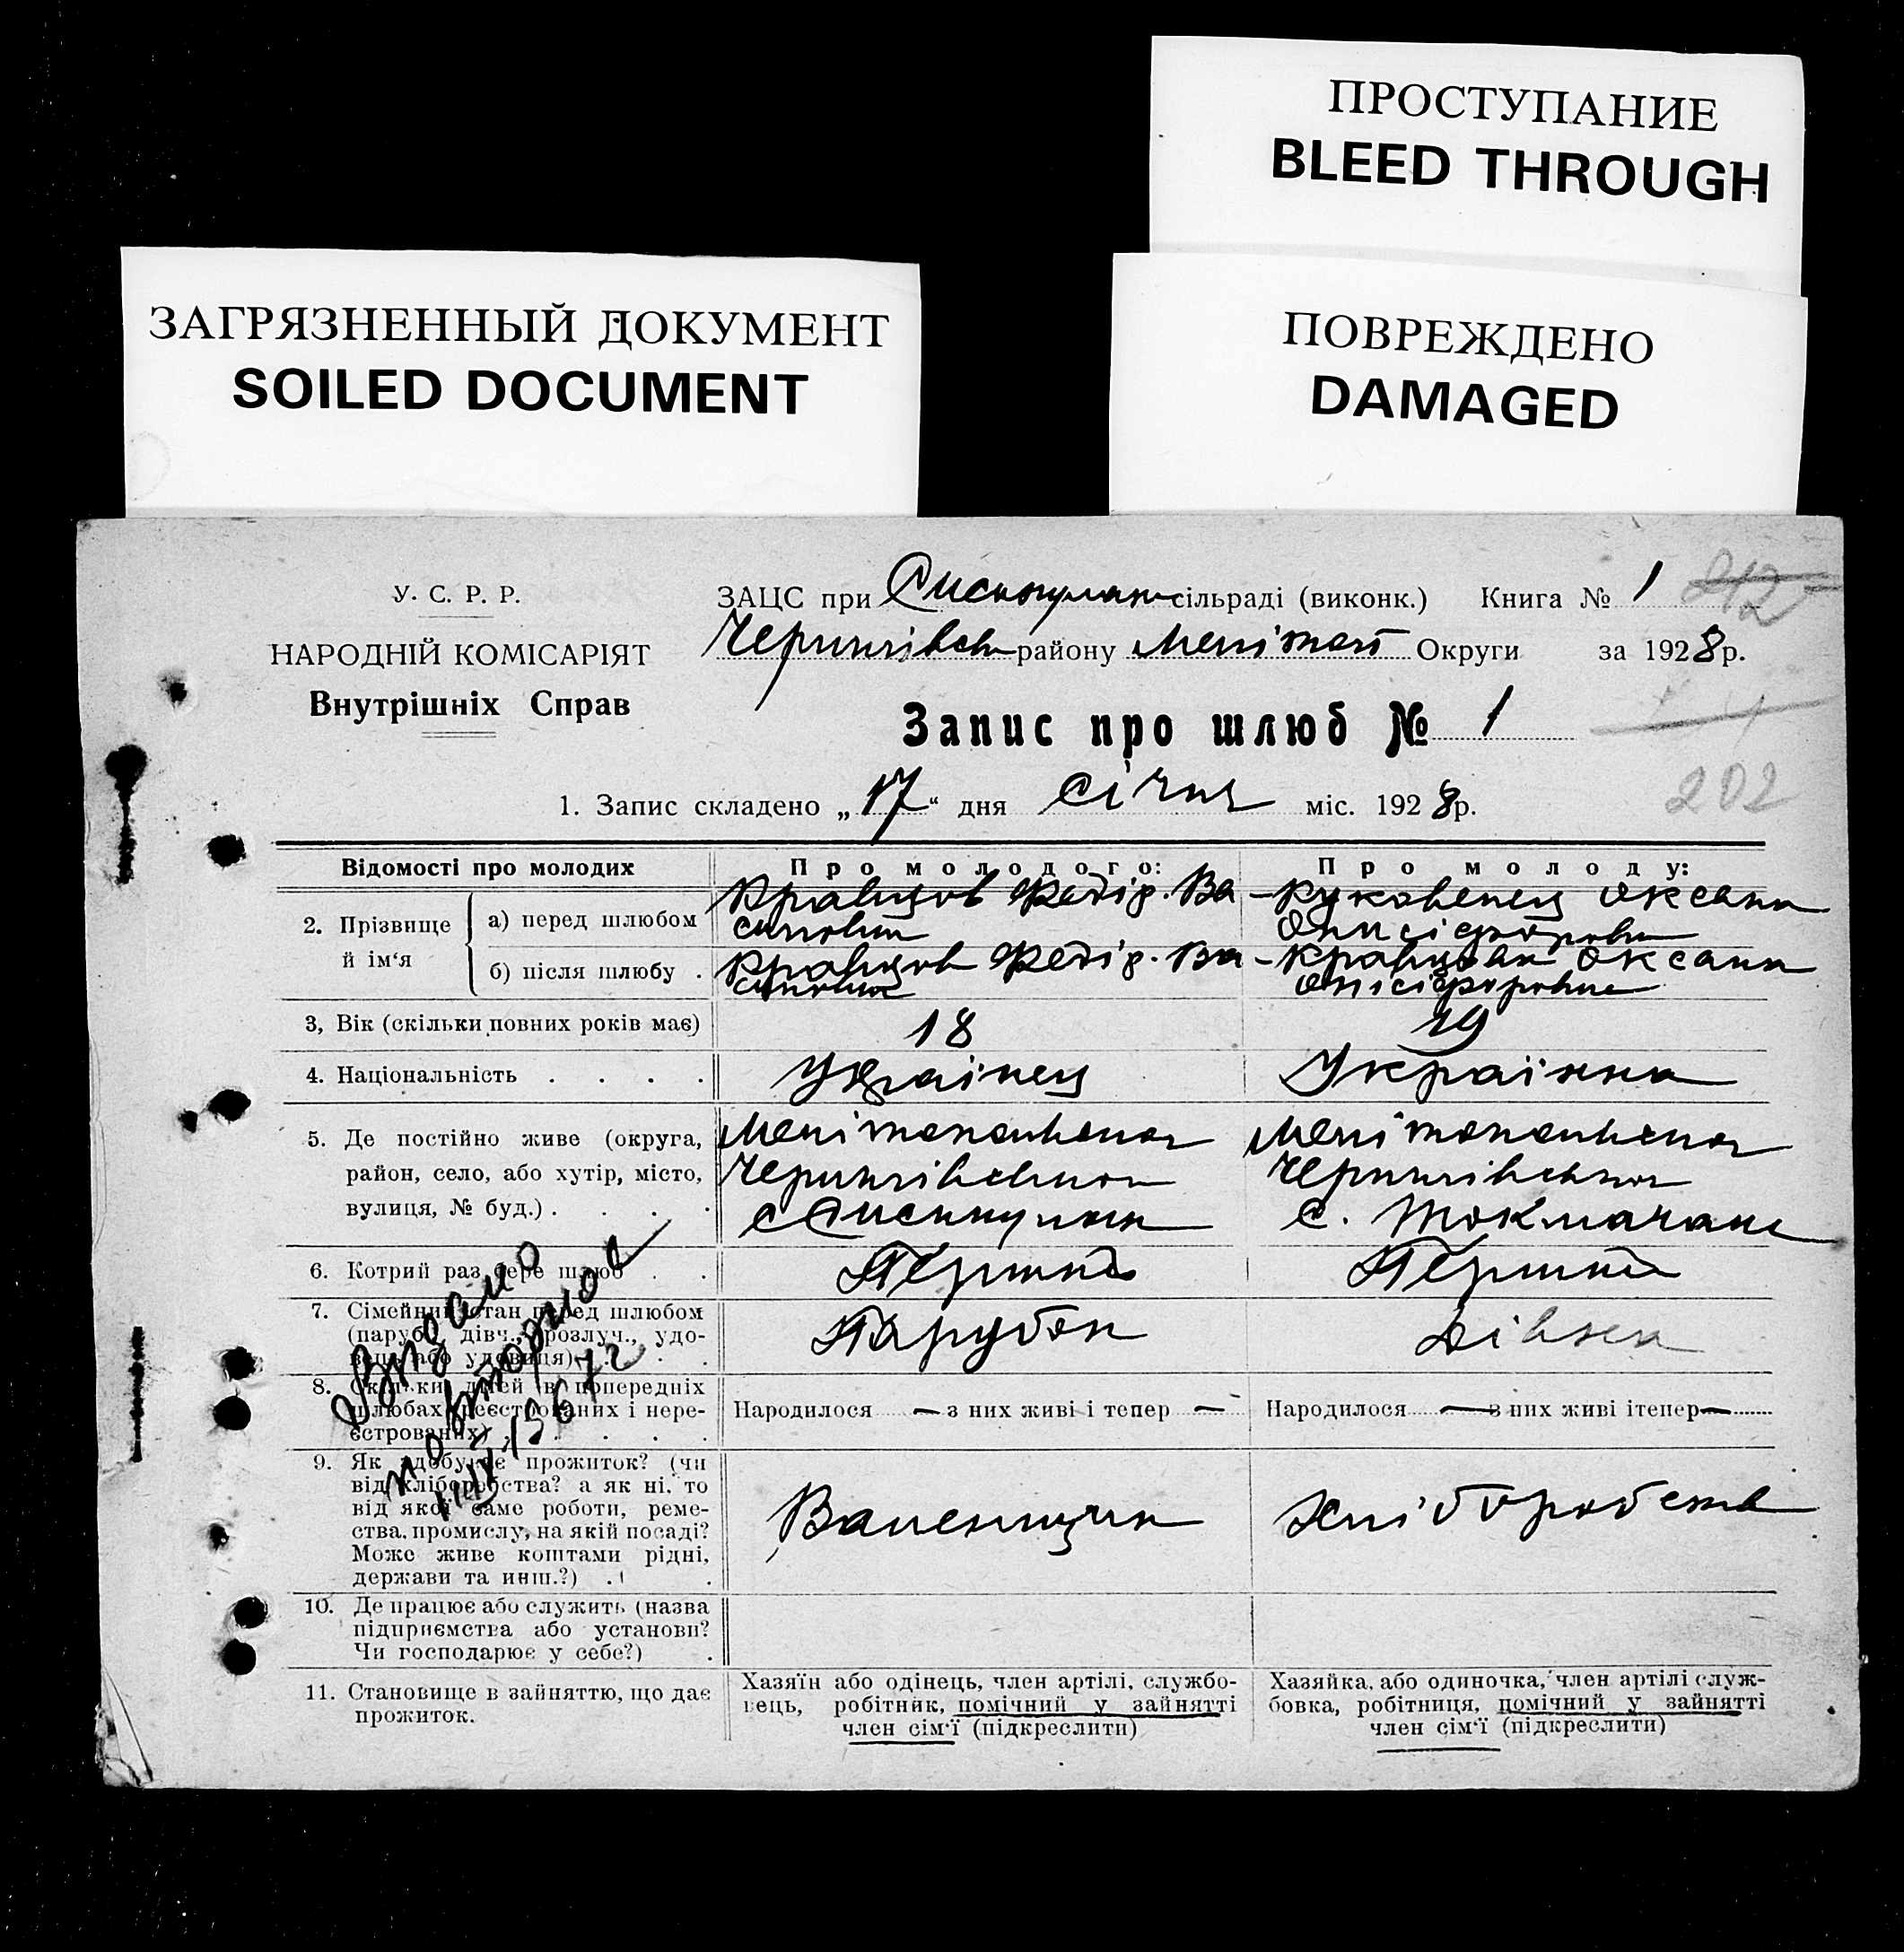 ПРОСТУПАНИЕ
BLEED THROUGH
ЗАГРЯЗНЕННЫЙ ДОКУМЕНТ
SOILED DOCUMENT
ПОВРЕЖДЕНО
DAMAGED
У. С. Р. Р.
НАРОДНІЙ КОМІСАРІЯТ
Внутрішніх Справ
ЗАЦС при сільраді (виконк.) Книга № 1 212
району Меліт Округи за 1928 р.
Запис про шлюб № 1
1. Запис складено „17“ дня січня міс. 1928 р.
202
Відомості про молодих
Про молодого:
Про молоду:
2. Прізвище й ім‘я
а) перед шлюбом
Кравцов Федір. Ва-
силович
Руковенец Оксана
Онисіфоровна
б) після шлюбу .
Кравцов Федір. Ва-
силович
Кравцова Оксана
Онісіфоровна
3, Вік (скільки повних років має)
18
19
4. Національність . . . .
Українец
Українка
5. Де постійно живе (округа,
район, село, або хутір, місто,
вулиця, № буд.) . . . .
Мелітопольська
Чернигівська
с
Мелітопольська
Чернигівська
с. Токмачка
6. Котрий раз бере шлюб . .
Перший
Перший
7. Сімейний стан перед шлюбом
(паруб., дівч., розлуч., удо-
вець або удовиця) . . .
Парубок
Дівка
8. Скільки дітей в попередніх
шлюбах реєстрованих і нере-
єстрованих) . . . . .
Народилося — з них живі і тепер —
Народилося — з них живі ітепер —
9. Як здобуває прожиток? (чи
від хліборобства? а як ні, то
від якої саме роботи, реме-
ства, промислу, на якій посаді?
Може живе коштами рідні,
держави та инш.?) . .
Хліборобств
10. Де працює або служить (назва
підприємства або установи?
Чи господарює у себе?) .
11. Становище в зайняттю, що дає
прожиток.
Хазяїн або одінець, член артілі, службо-
вець, робітник, помічний у зайнятті
член сім‘ї (підкреслити)
Хазяйка, або одиночка, член артілі служ-
бовка, робітниця, помічний у зайнятті
член сім‘ї (підкреслити)
Видано
повторное
1967 г